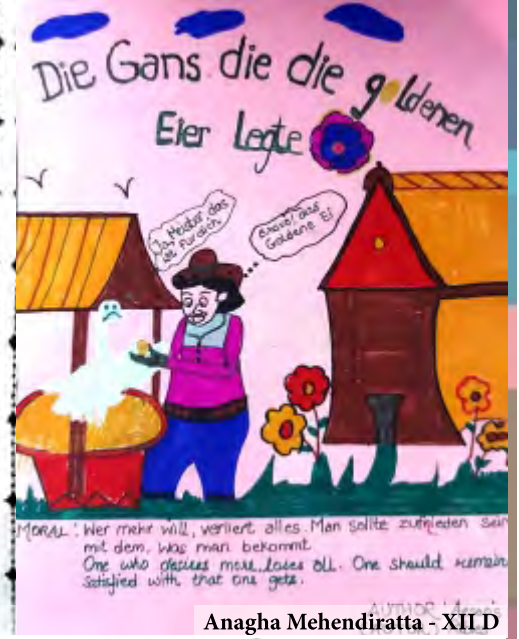 Die Gans die die goldenen
Eier Legte
Ja, Meister das
ist für dich
Bravo! das
Goldene Ei
MORAL: Wer mehr will, verliert alles. Man sollte zufrieden sein
mit dem. Was man bekommt
One who desires more, loses all. One should remain
Satisfied with that one gets.
AUTHOR:
Anagha Mehendiratta - XII D